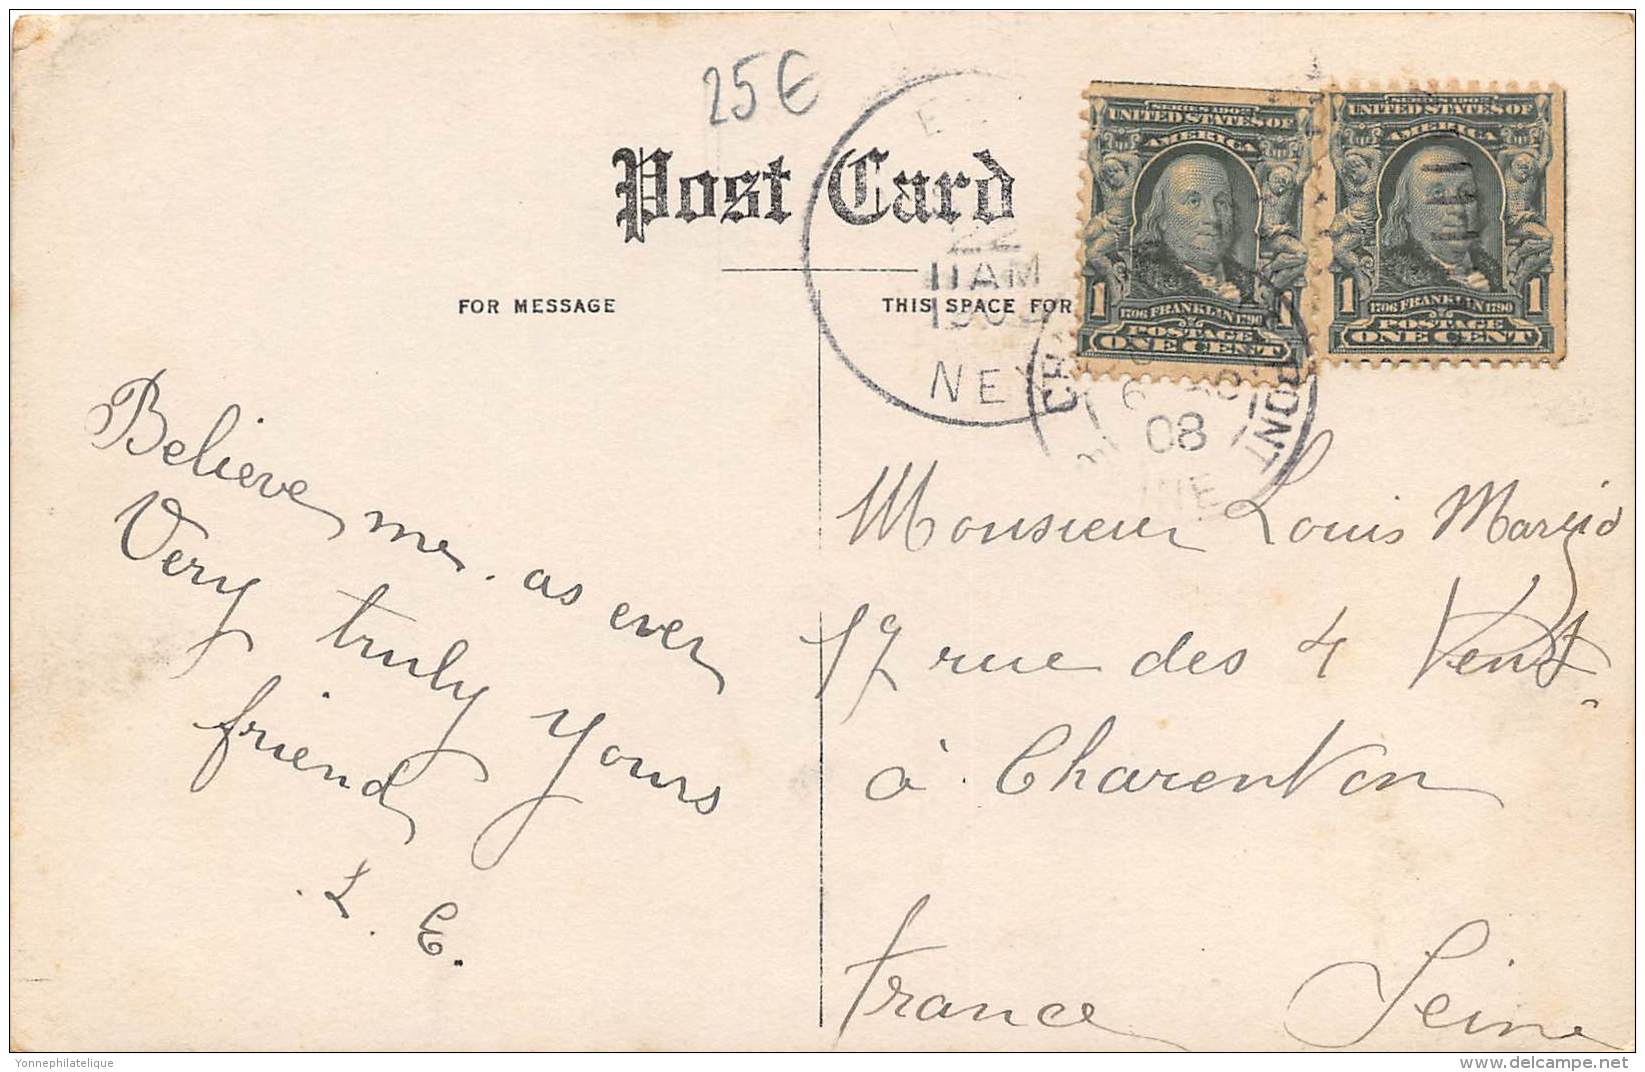 25€
Post Card
FOR MESSAGE
THIS SPACE FOR
11 AM
NEV
08
SERIES 1902
UNITED STATES OF
AMERICA
1706 FRANKLIN 1790
1 1
POSTAGE
ONE CENT
SERIES 1902
UNITED STATES OF
AMERICA
1706 FRANKLIN 1790
1 1
POSTAGE
ONE CENT
Believe me. as ever
Very truly yours
friend
L. E.
Monsieur Louis
17 rue des 4 Vents
à Charenton
France Seine
Yonnephilatelique
delcampe.net